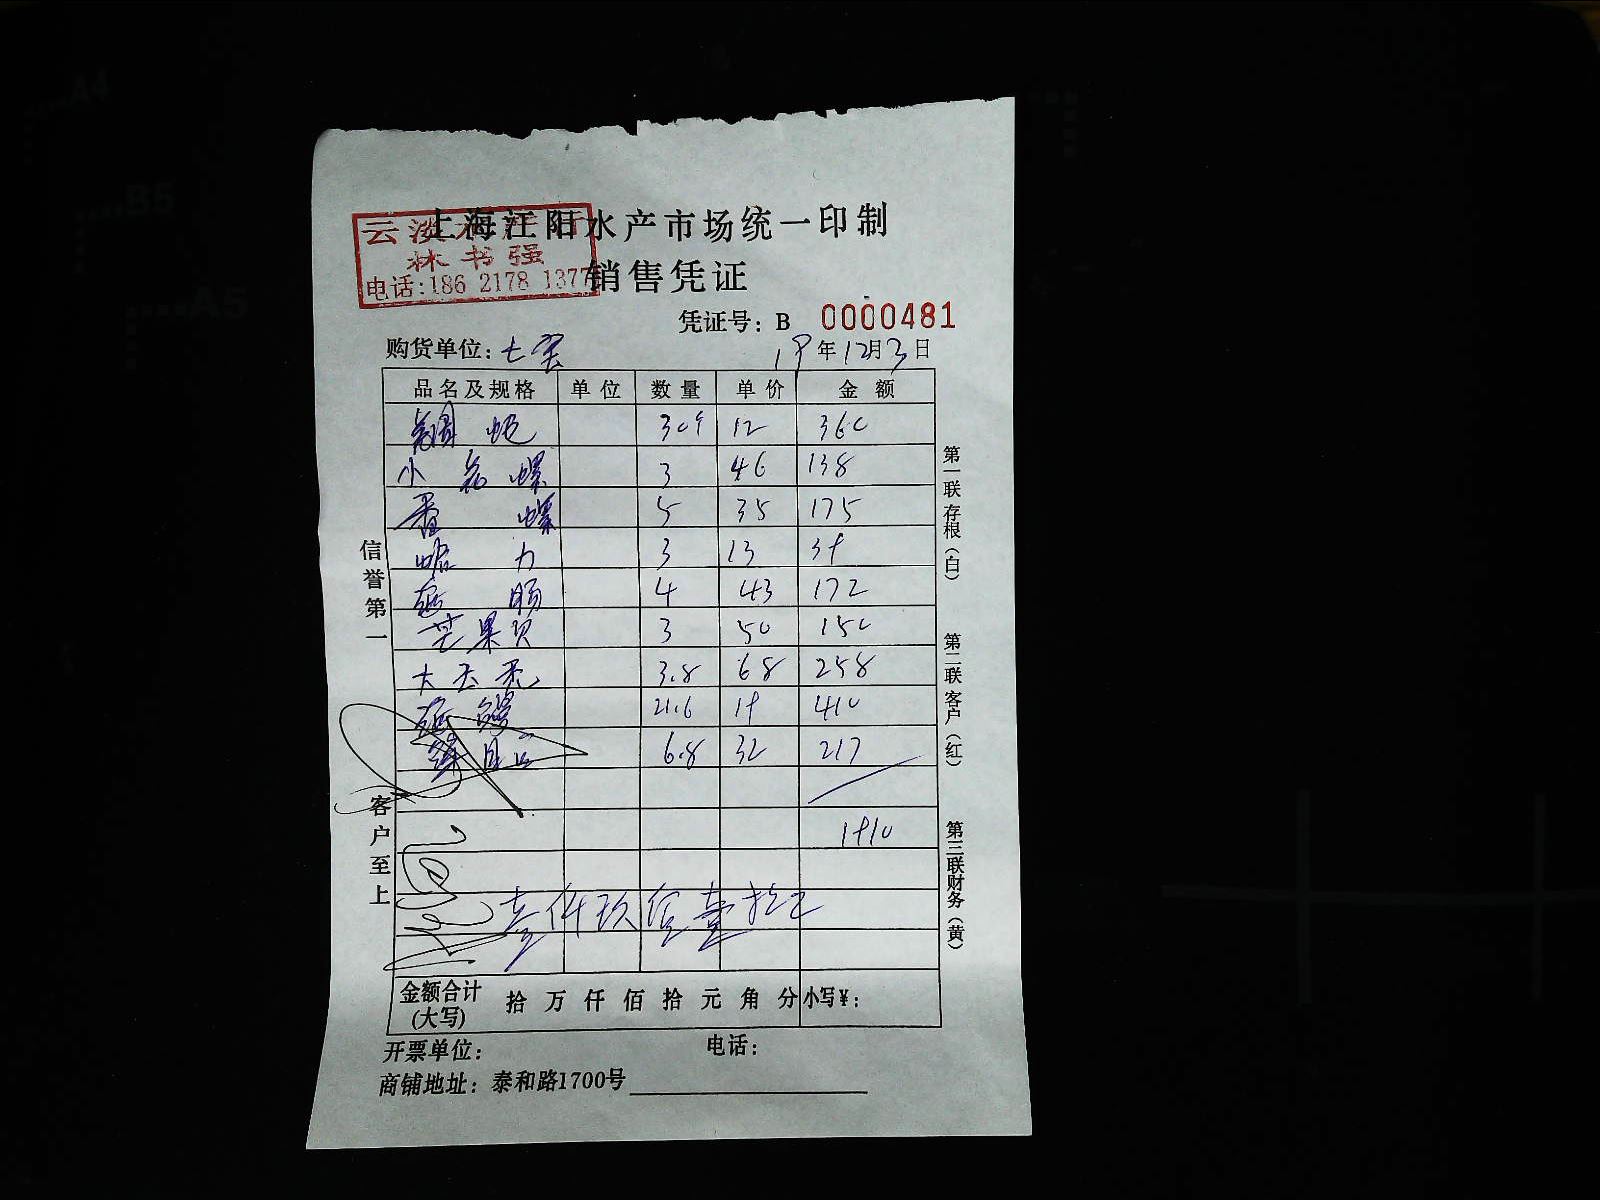 上海江阳水产市场统一印制
云淡水产行
林书强
电话:186 2178 1377
销售凭证
凭证号: B 0000481
购货单位: 七宝 19年12月3日
品名及规格 单位 数量 单价 金额
30个 12 360
小 螺 3 46 138
螺 5 35 175
3 13 39
肠 4 43 172
芒果贝 3 50 150
大 3.8 68 258
21.6 19 410
6.8 32 217
1910
壹仟玖佰壹拾元
金额合计(大写) 拾 万 仟 佰 拾 元 角 分 小写¥:
开票单位: 电话:
商铺地址: 泰和路1700号
信誉第一
客户至上
第一联 存根(白)
第二联 客户(红)
第三联 财务(黄)
A4
B5
A5